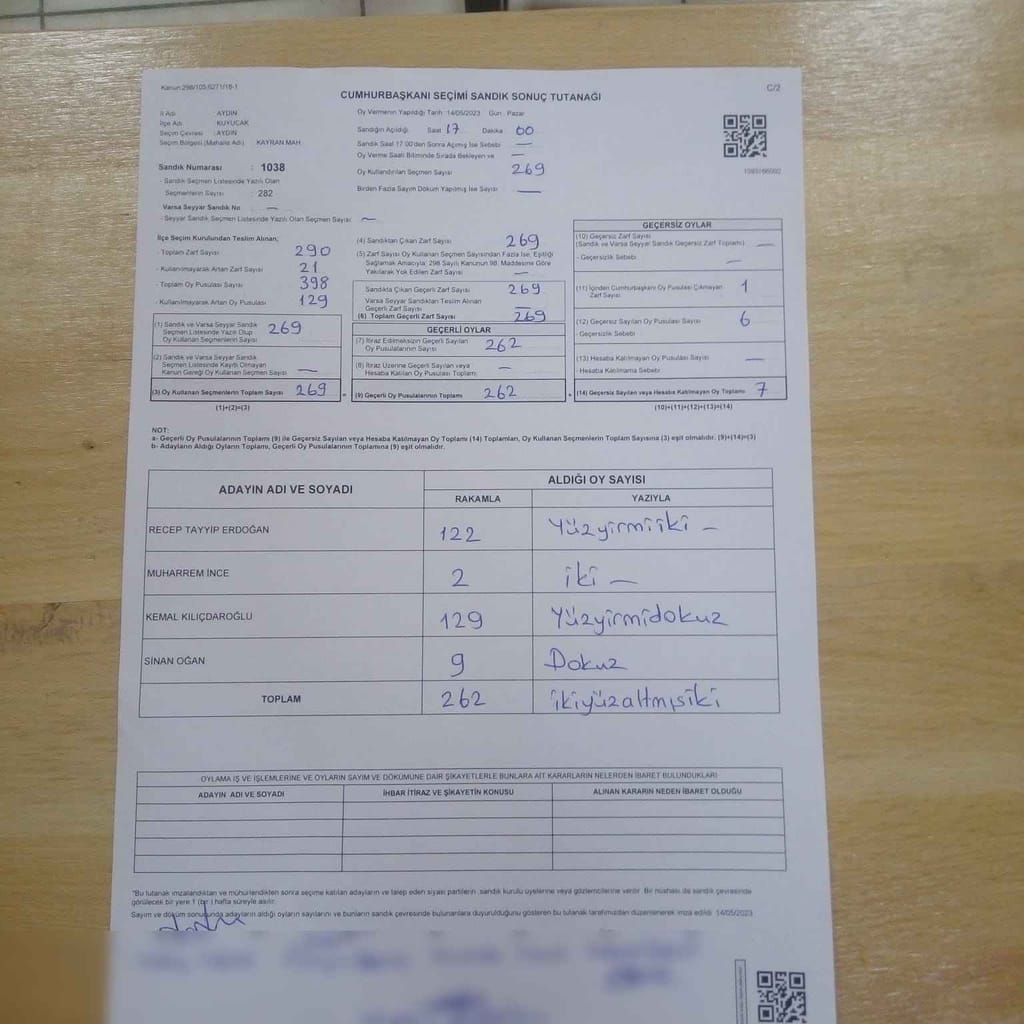 Kanun 298/105,6271/18-1
C/2
CUMHURBAŞKANI SEÇİMİ SANDIK SONUÇ TUTANAĞI
İl Adı AYDIN
İlçe Adı KUYUCAK
Seçim Çevresi : AYDIN
Seçim Bölgesi (Mahalle Adı) KAYRAN MAH.
Sandık Numarası : 1038
- Sandık Seçmen Listesinde Yazılı Olan
Seçmenlerin Sayısı : 282
Varsa Seyyar Sandık No : —
- Seyyar Sandık Seçmen Listesinde Yazılı Olan Seçmen Sayısı : —
Oy Vermenin Yapıldığı Tarih 14/05/2023 Gün Pazar
Sandığın Açıldığı Saat 17 Dakika 00
Sandık Saat 17.00'den Sonra Açılmış İse Sebebi —
Oy Verme Saati Bitiminde Sırada Bekleyen ve —
Oy Kullandırılan Seçmen Sayısı 269
Birden Fazla Sayım Döküm Yapılmış İse Sayısı —
İlçe Seçim Kurulundan Teslim Alınan;
- Toplam Zarf Sayısı 290
- Kullanılmayarak Artan Zarf Sayısı 21
- Toplam Oy Pusulası 398
- Kullanılmayarak Artan Oy Pusulası 129
(1) Sandık ve Varsa Seyyar Sandık
Seçmen Listesinde Yazılı Olup
Oy Kullanan Seçmenlerin Sayısı 269
(2) Sandık ve Varsa Seyyar Sandık
Seçmen Listesinde Kayıtlı Olmayan
Kanun Gereği Oy Kullanan Seçmen Sayısı —
(3) Oy Kullanan Seçmenlerin Toplam Sayısı 269 =
(1)+(2)=(3)
(4) Sandıktan Çıkan Zarf Sayısı 269
(5) Zarf Sayısı Oy Kullanan Seçmen Sayısından Fazla İse, Eşitliği
Sağlamak Amacıyla; 298 Sayılı Kanunun 98. Maddesine Göre
Yakılarak Yok Edilen Zarf Sayısı —
Sandıkta Çıkan Geçerli Zarf Sayısı 269
Varsa Seyyar Sandıktan Teslim Alınan
Geçerli Zarf Sayısı —
(6) Toplam Geçerli Zarf Sayısı 269
GEÇERLİ OYLAR
(7) İtiraz Edilmeksizin Geçerli Sayılan
Oy Pusulalarının Sayısı 262
(8) İtiraz Üzerine Geçerli Sayılan veya
Hesaba Katılan Oy Pusulası Toplamı —
(9) Geçerli Oy Pusulalarının Toplamı 262 +
GEÇERSİZ OYLAR
(10) Geçersiz Zarf Sayısı
(Sandık ve Varsa Seyyar Sandık Geçersiz Zarf Toplamı) —
- Geçersizlik Sebebi —
(11) İçinden Cumhurbaşkanı Oy Pusulası Çıkmayan
Zarf Sayısı 1
(12) Geçersiz Sayılan Oy Pusulası Sayısı 6
- Geçersizlik Sebebi
(13) Hesaba Katılmayan Oy Pusulası Sayısı —
- Hesaba Katılmama Sebebi
(14) Geçersiz Sayılan veya Hesaba Katılmayan Oy Toplamı 7
(10)+(11)+(12)+(13)=(14)
NOT:
a- Geçerli Oy Pusulalarının Toplamı (9) ile Geçersiz Sayılan veya Hesaba Katılmayan Oy Toplamı (14) Toplamları, Oy Kullanan Seçmenlerin Toplam Sayısına (3) eşit olmalıdır. (9)+(14)=(3)
b- Adayların Aldığı Oyların Toplamı, Geçerli Oy Pusulalarının Toplamına (9) eşit olmalıdır.
ADAYIN ADI VE SOYADI ALDIĞI OY SAYISI
RAKAMLA YAZIYLA
RECEP TAYYİP ERDOĞAN 122 Yüzyirmiiki —
MUHARREM İNCE 2 iki —
KEMAL KILIÇDAROĞLU 129 Yüzyirmidokuz
SİNAN OĞAN 9 Dokuz
TOPLAM 262 ikiyüzaltmışiki
OYLAMA İŞ VE İŞLEMLERİNE VE OYLARIN SAYIM VE DÖKÜMÜNE DAİR ŞİKAYETLERLE BUNLARA AİT KARARLARIN NELERDEN İBARET BULUNDUKLARI
ADAYIN ADI VE SOYADI İHBAR İTİRAZ VE ŞİKAYETİN KONUSU ALINAN KARARIN NEDEN İBARET OLDUĞU
"Bu tutanak imzalandıktan ve mühürlendikten sonra seçime katılan adayların ve talep eden siyasi partilerin sandık kurulu üyelerine veya gözlemcilerine verilir. Bir nüshası de sandık çevresinde
görülecek bir yere 1 (bir ) hafta süreyle asılır.
Sayım ve döküm sonucunda adayların aldığı oyların sayılarını ve bunların sandık çevresinde bulunanlara duyurulduğunu gösteren bu tutanak tarafımızdan düzenlenerek imza edildi. 14/05/2023